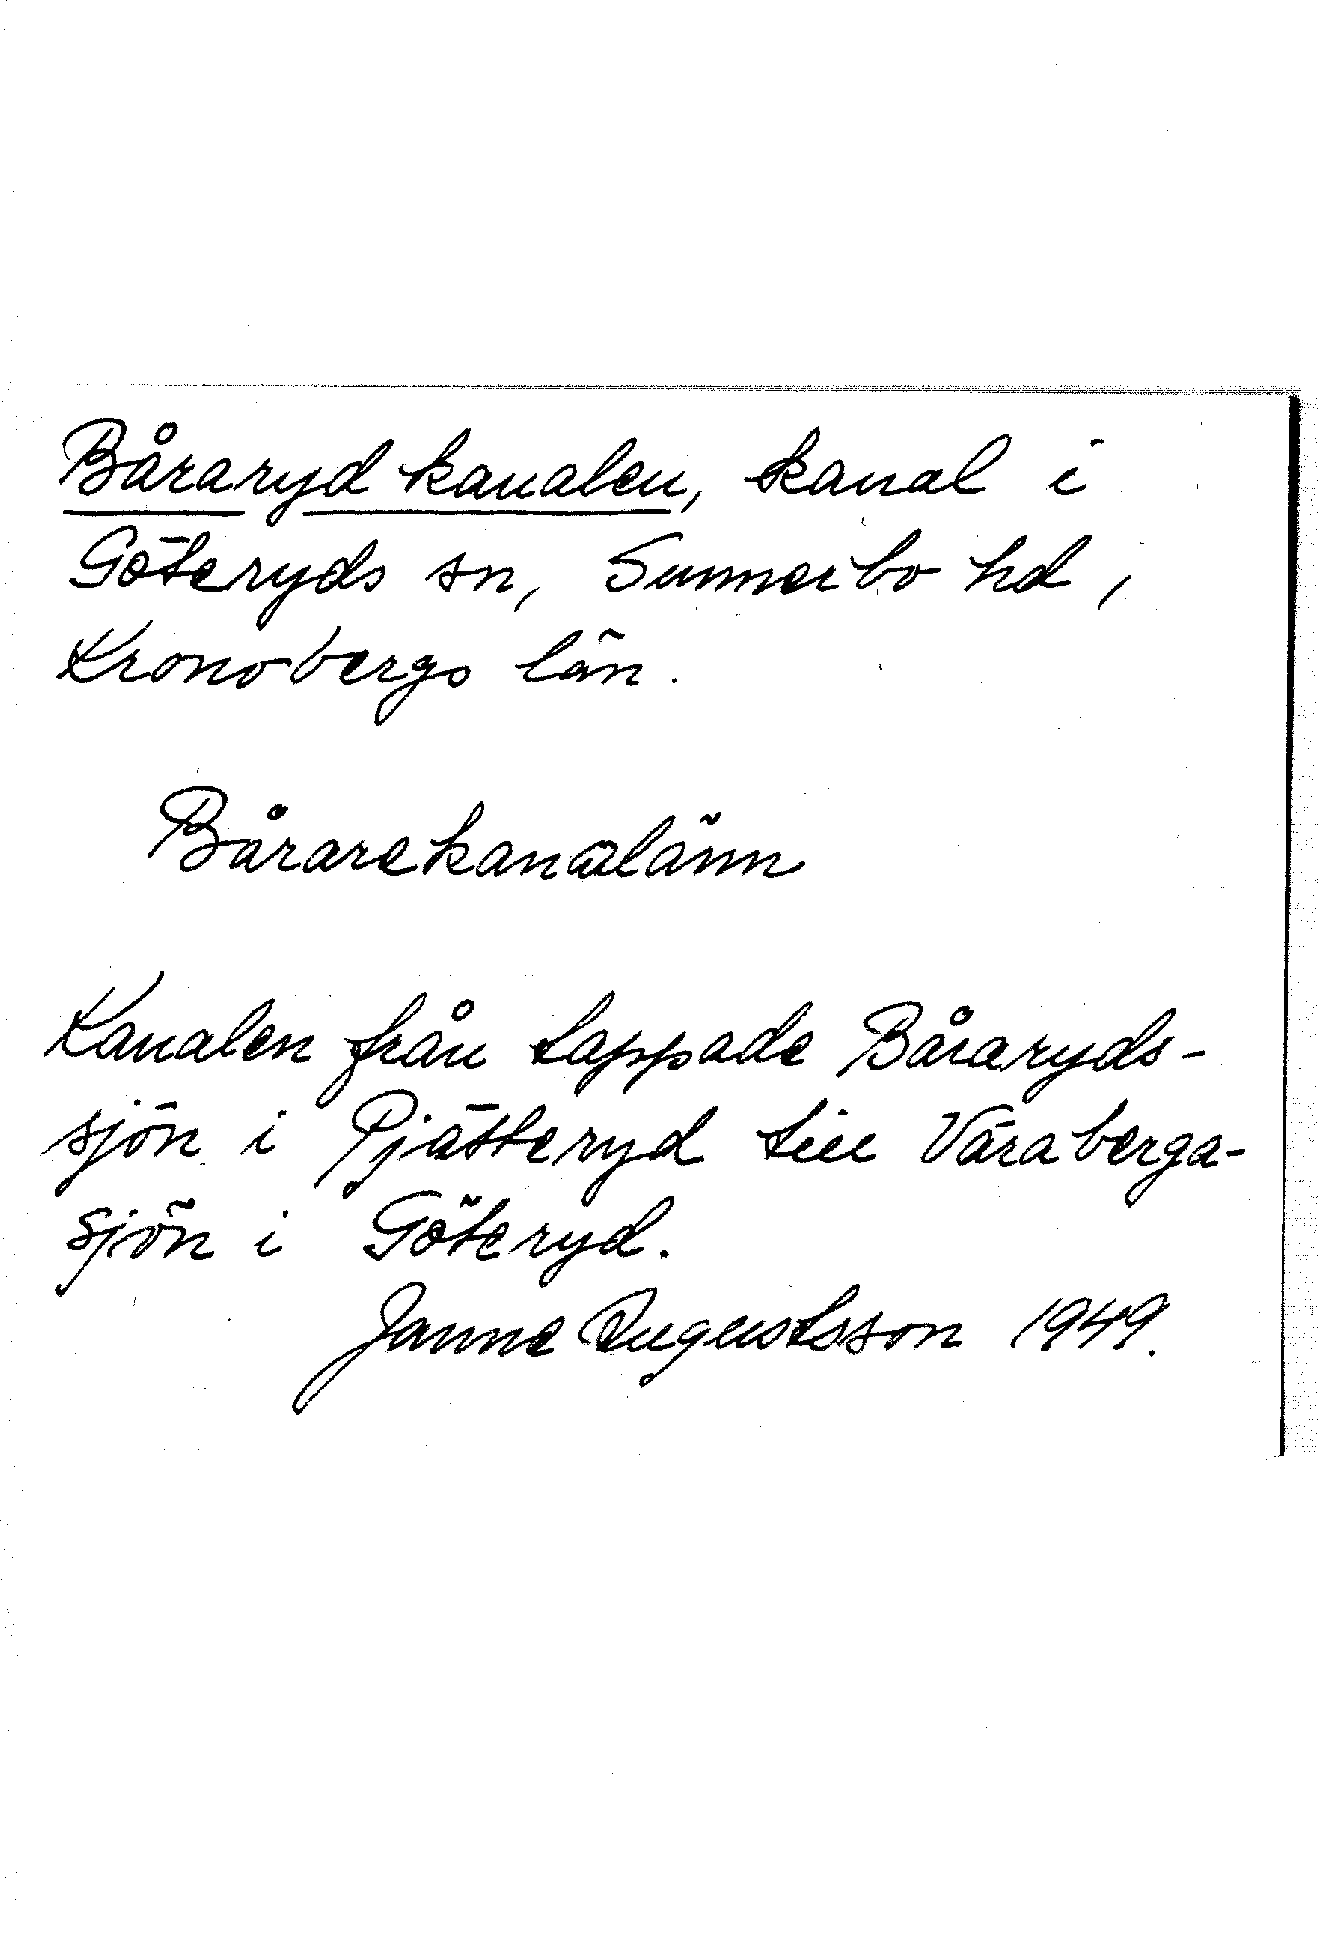 Båraryd kanalen, kanal i
Göteryds sn, Sunnerbo hd,
Kronobergs län.
Bårarekanalänn
Kanalen från tappade Båraryds-
sjön i Pjätteryd till Våraberga-
sjön i Göteryd.
Janne Augustsson 1949.